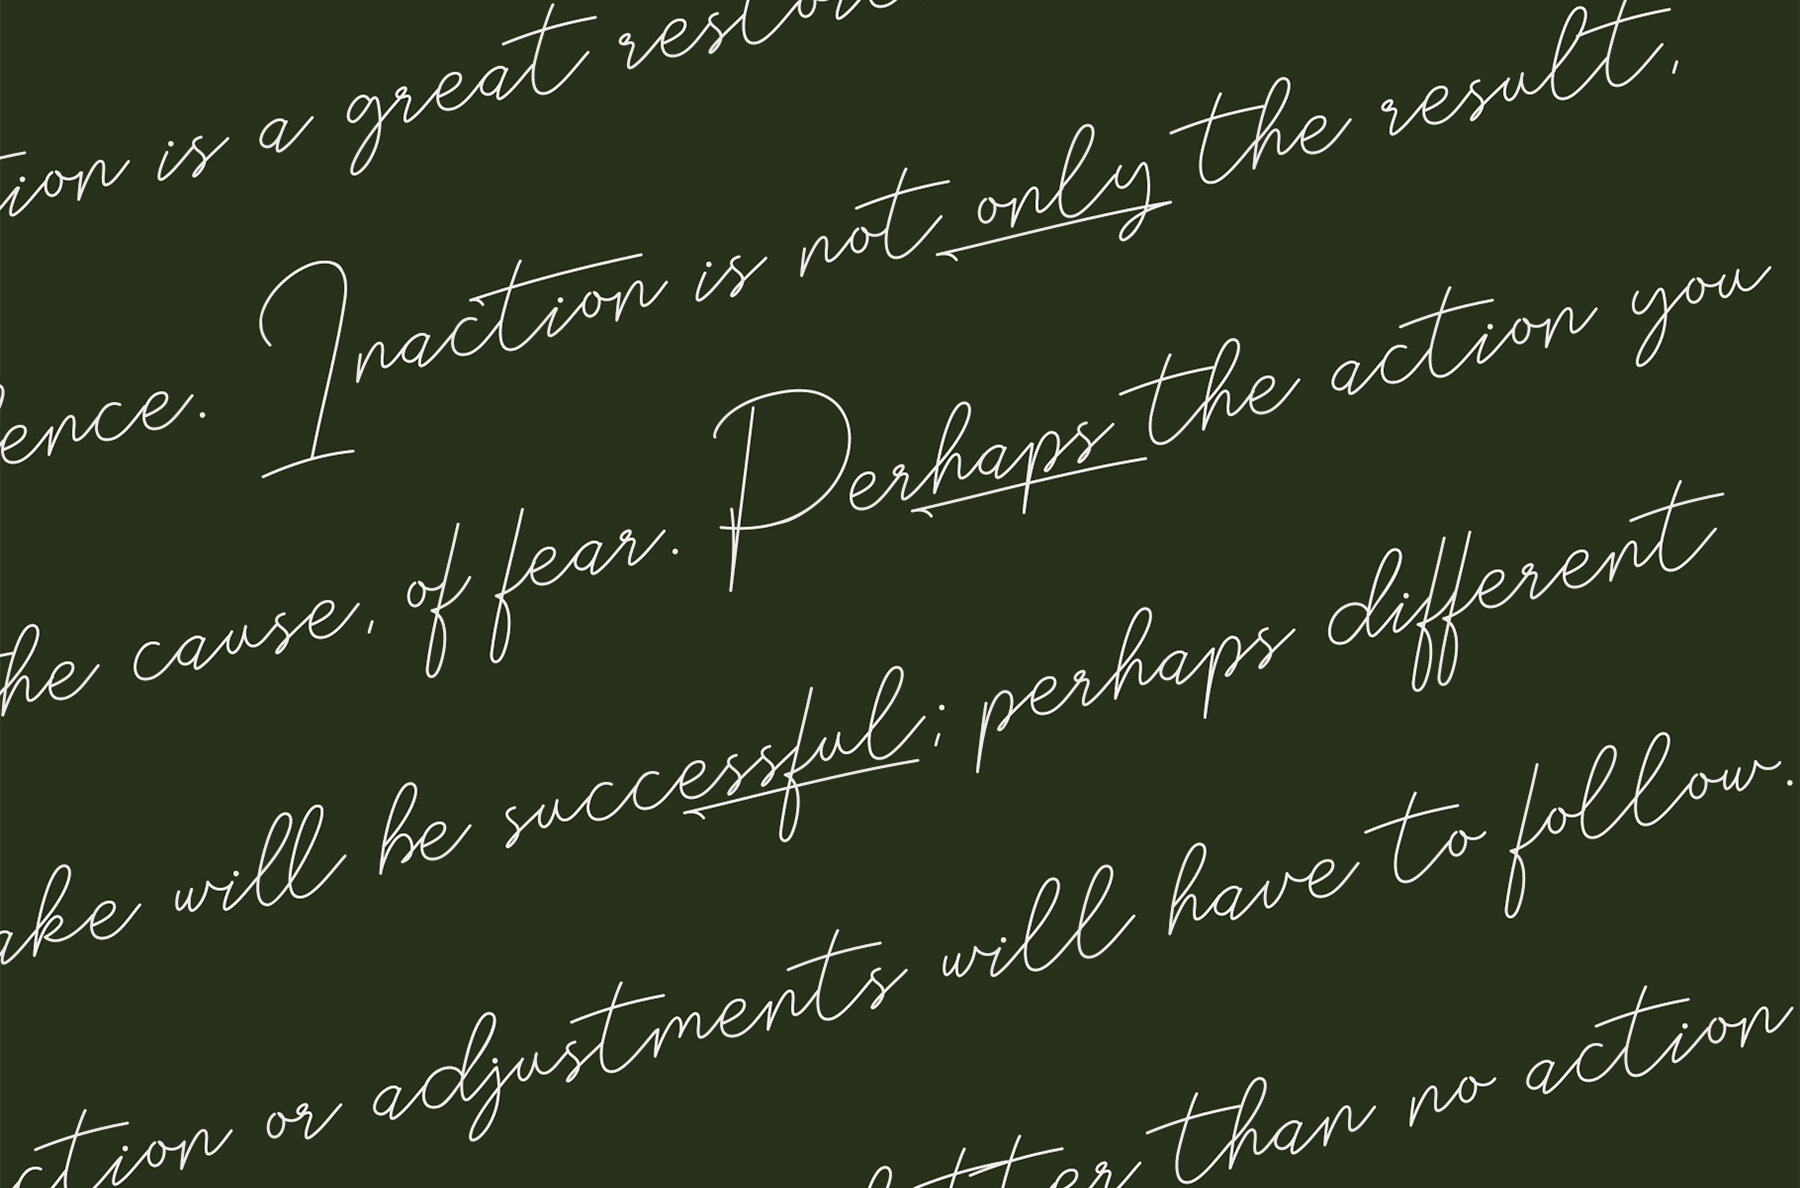 ion is a great resto
ence. Inaction is not only the result,
he cause, of fear. Perhaps the action you
ake will be successful; perhaps different
ction or adjustments will have to follow.
tter than no action